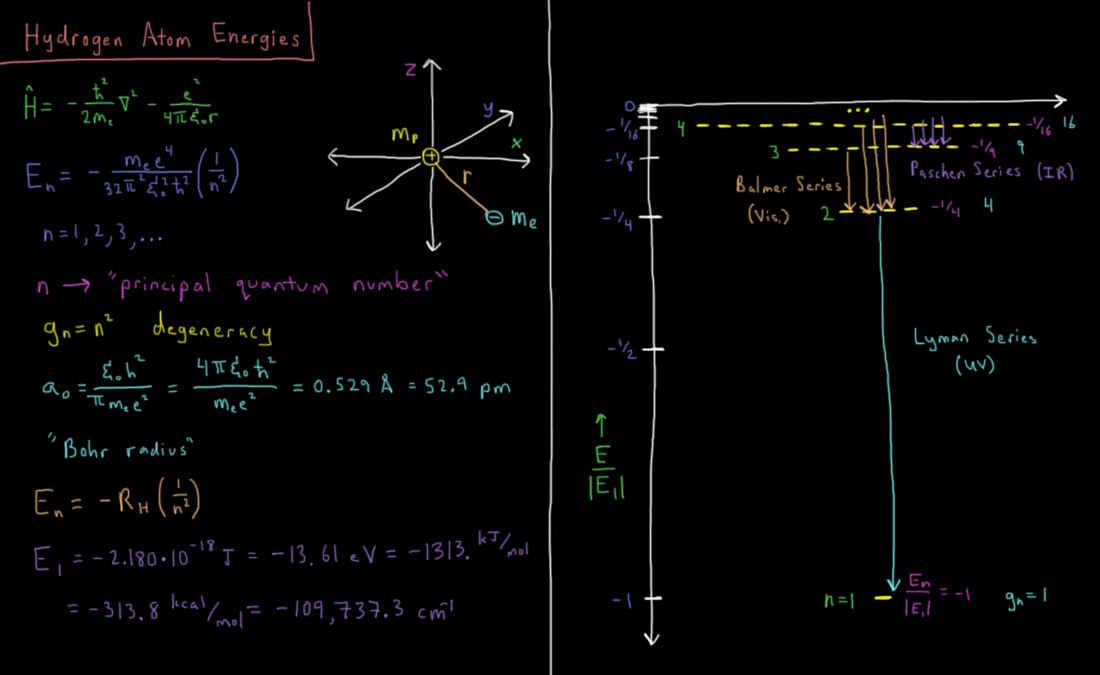 Hydrogen Atom Energies
Ĥ = -ħ²/2mₑ ∇² - e²/4πε₀r
Eₙ = - mₑe⁴/32π²ε₀²ħ² (1/n²)
n = 1, 2, 3, ...
n → "principal quantum number"
gₙ = n² degeneracy
a₀ = ε₀h²/πmₑe² = 4πε₀ħ²/mₑe² = 0.529 Å = 52.9 pm
"Bohr radius"
Eₙ = -R_H (1/n²)
E₁ = -2.180·10⁻¹⁸ J = -13.61 eV = -1313. kJ/mol
= -313.8 kcal/mol = -109,737.3 cm⁻¹
z
y
x
mₚ
+
r
⊖ mₑ
0
...
-1/16
4
-1/16 16
3
-1/9 9
-1/8
Paschen Series (IR)
Balmer Series
(Vis.)
2
-1/4 4
-1/4
-1/2
Lyman Series
(UV)
↑
E/|E₁|
-1
n=1
Eₙ/|E₁| = -1
gₙ = 1